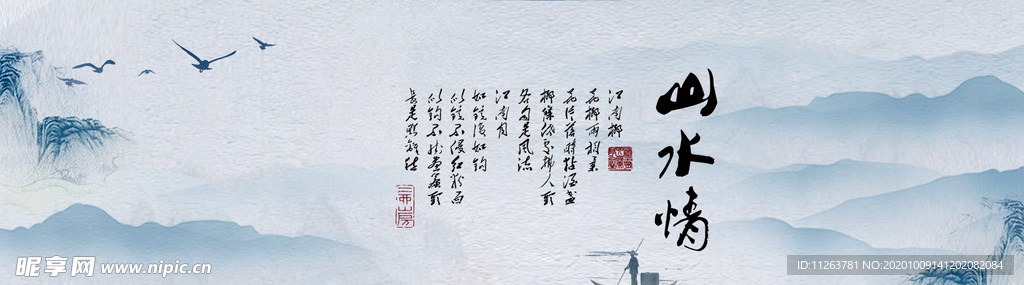 山水情
江南柳
花柳两相柔
花片落时黏酒盏
柳条低处拂人头
各自是风流
江南月
如镜复如钩
似镜不侵红粉面
似钩不挂画帘头
长是照离愁
昵享网 www.nipic.cn
ID:11263781 NO:20201009141202082084